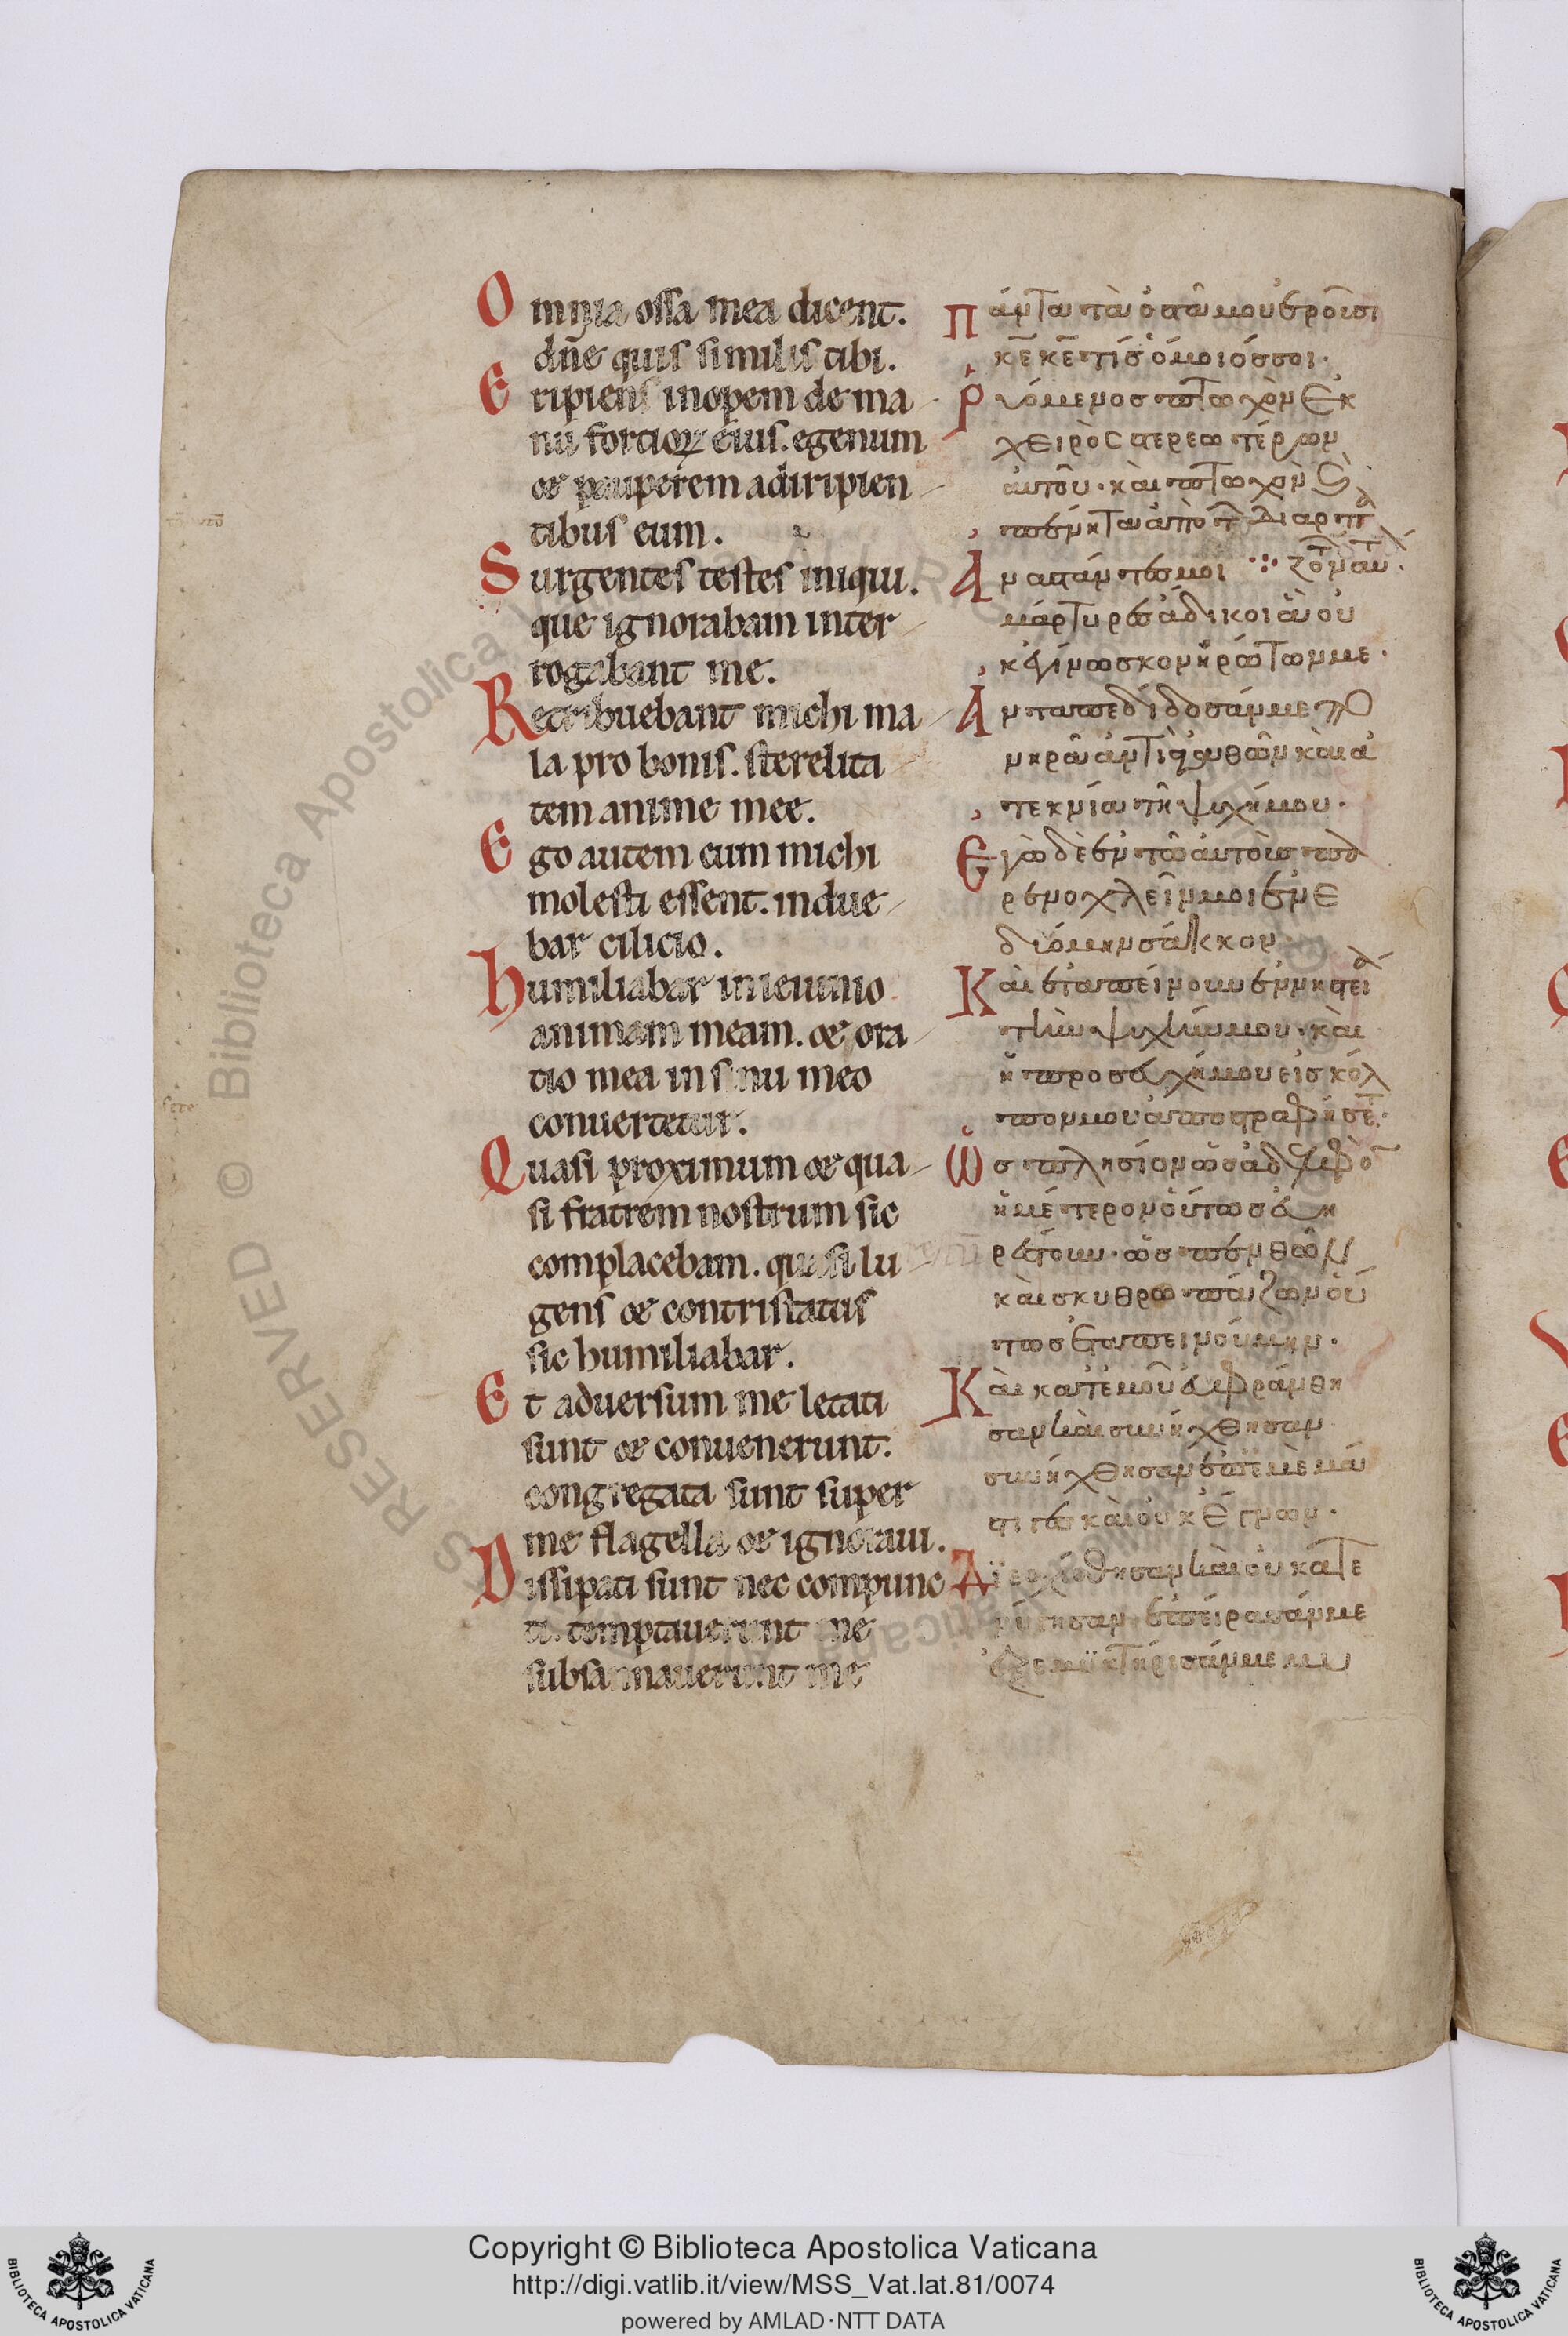 Omnia ossa mea dicent.
dn̄e quis similis tibi.
Eripiens inopem de ma-
nu fortioꝝ eius. egenum
et pauperem a diripien-
tibus eum.
Surgentes testes iniqui.
que ignorabam inter-
rogabant me.
Retribuebant michi ma-
la pro bonis. sterelita-
tem anime mee.
Ego autem cum michi
molesti essent. indue-
bar cilicio.
Humiliabar in ieiunio
animam meam. et ora-
tio mea in sinu meo
conuertetur.
Quasi proximum et qua-
si fratrem nostrum sic
complacebam. quasi lu-
gens et contristatus
sic humiliabar.
Et aduersum me letati
sunt et conuenerunt.
congregata sunt super
me flagella et ignoraui.
Dissipati sunt nec compunc
ti. temptauerunt me
subsannauerunt me
Πάντα τὰ ὀστᾶ μου ἐροῦσι
κ̅ε̅ κ̅ε̅ τίς ὅμοιός σοι.
Ῥυόμενος πτωχὸν ἐκ
χειρὸς στερεωτέρων
αὐτοῦ. καὶ πτωχὸν ϗ
πένητα ἀπὸ τ διαρπα
ζόντ αυτ.
Ἀναστάντες μοι
μάρτυρες ἄδικοι ἃ οὐ
κ ἐγίνωσκον ἠρώτων με.
Ἀνταπεδίδοσάν με πο
νηρὰ ἀντὶ ἀγαθῶν καὶ ἀ
τεκνίαν τῆ ψυχῆ μου.
Ἐγὼ δὲ ἐν τῶ αὐτοὺς πα
ρενοχλεῖν μοι ἐνε
διόμην σάκκον.
Καὶ ἐταπείνουν ἐν νηστεία
τὴν ψυχήν μου. καὶ
ἡ προσευχή μου εἰς κόλ
πον μου ἀποστραφήσετ.
Ὡς πλησίον ὡς ἀδελφὸν
ἡμέτερον οὕτως εὐη
ρέστουν. ὡς πενθῶν
καὶ σκυθρωπάζων οὕ
τως ἐταπεινούμην.
Καὶ κατ' ἐμοῦ εὐφράνθη
σαν καὶ συνήχθησαν
συνήχθησαν ἐπ' ἐμὲ μά
στιγες καὶ οὐκ ἔγνων.
θησαν καὶ οὐ κατε
νύγησαν. ἐπείρασάν με
ἐξεμυκτήρισάν με μυ
Copyright © Biblioteca Apostolica Vaticana
http://digi.vatlib.it/view/MSS_Vat.lat.81/0074
powered by AMLAD·NTT DATA
BIBLIOTECA APOSTOLICA VATICANA
BIBLIOTECA APOSTOLICA VATICANA